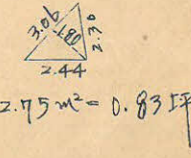 3.06
1.80
2.30
2.44
2.75 m² = 0.83 坪